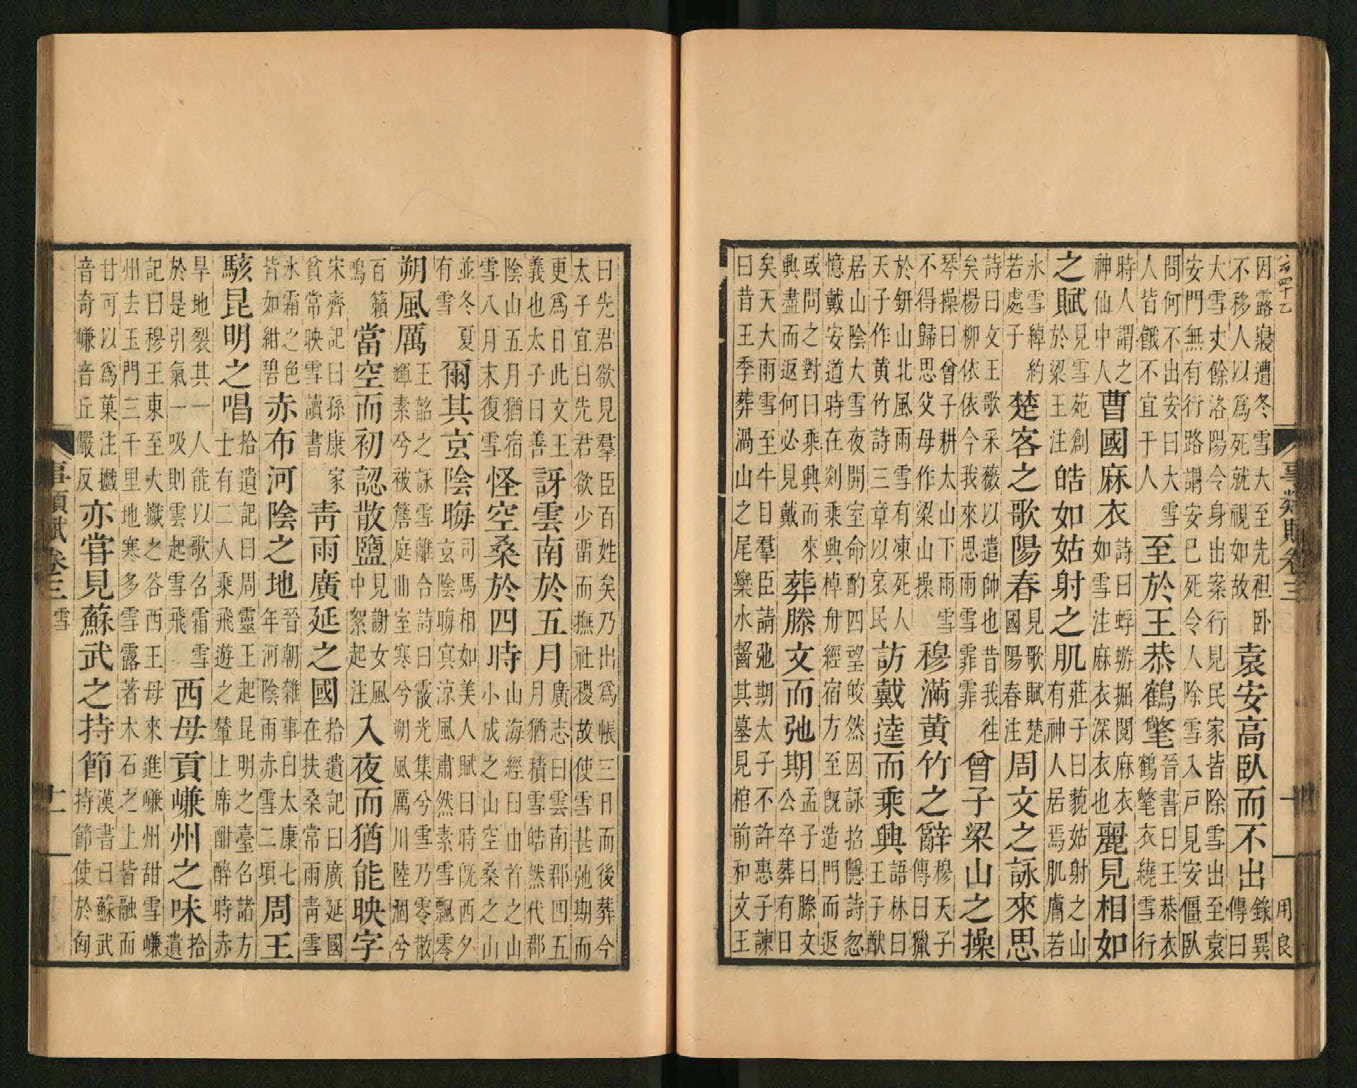 云四十乙
事類賦卷三
十一
用良
因露寢遭冬雪大至先袒卧不移人以爲死就視如故袁安高臥而不出錄異傳曰
大雪丈餘洛陽令身出案行見民家皆除雪出至袁安門無有行路謂安已死令人除雪入戶見安僵臥
問何不出安曰大雪人皆餓不宜干人至於王恭鶴氅晉書曰王恭衣鶴氅衣繞雪行
時人謂之神仙中人曹國麻衣詩曰蜉蝣掘閱麻衣如雪注麻衣深衣也麗見相如
之賦見雪苑創於梁王注皓如姑射之肌莊子曰藐姑射之山有神人居焉肌膚若
氷雪綽約若處子楚客之歌陽春見歌賦楚國陽春注周文之詠來思
詩曰文王歌采薇以遣帥也昔我徃矣楊柳依依今我來思雨雪霏霏曾子梁山之操
琴操曰曾子耕太山下雨雪不得歸思父母作梁山操穆滿黃竹之辭穆天子傳曰獵
於鈃山北風雨雪有凍死人天子作黃竹詩三章以哀民訪戴逵而乘興語林曰王子猷
居山陰大雪夜開室命酌四望皎然因詠招隱詩忽憶戴安道時在剡乘興棹舟經宿方至既造門而返
或問之對曰乘興而來興盡而返何必見戴葬滕文而弛期孟子曰滕文公卒葬有日
矣天大雨雪至牛目羣臣請弛期太子不許惠子諫曰昔王季葬渦山之尾欒水齧其墓見棺前和文王
曰先君欲見羣臣百姓矣乃出爲帳三日而後葬今太子宜曰先君欲少畱而撫社稷故使雪甚弛期而
更爲日此文王義也太子曰善訝雲南於五月廣志曰雲南郡四五月猶積雪皓然代郡
陰山五月猶宿雪八月末復雪怪空桑於四時山海經曰由首之山小成之山空桑之山
並冬夏有雪爾其玄陰晦司馬相如美人賦曰時旣西夕玄陰晦冥涼風肅然素雪飄零
朔風厲王韶之詠雪離合詩曰霰光集兮雪乃零散素兮被簷庭曲室寒兮朔風厲川陸涸兮
百籟鳴當空而初認散鹽見謝女風中絮起注入夜而猶能映字
宋齊記曰孫康家貧常映雪讀書靑雨廣延之國拾遺記曰廣延國在扶桑常雨靑雪
氷霜之色皆如紺碧赤布河陰之地晉朝雜事曰太康七年河陰雨赤雪二頃周王
駭昆明之唱拾遺記曰周靈王起昆明之臺名諸方士有二人乘飛遊之輦上席酣醉時赤
旱地裂其一人能以歌名霜雪於是引氣一吸則雲起雪飛西母貢嵰州之味拾遺
記曰穆王東至大㩥之谷西王母來進嵰州甜雪嵰州去玉門三千里地寒多雪露著木石之上皆融而
甘可以爲菓注㩥音奇嵰音丘嚴反亦甞見蘇武之持節漢書曰蘇武持節使於匈
事類賦卷三 雪
十一